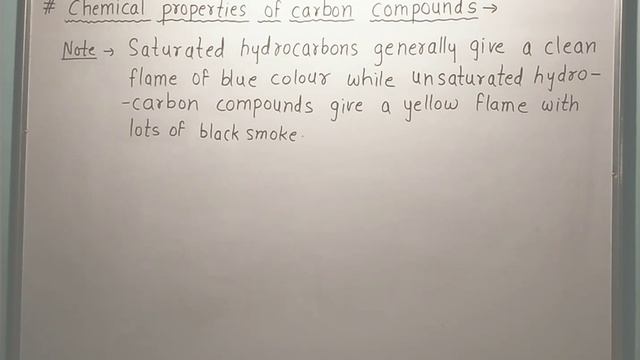 # Chemical properties of carbon compounds →
Note → Saturated hydrocarbons generally give a clean
flame of blue colour while unsaturated hydro-
-carbon compounds give a yellow flame with
lots of black smoke.